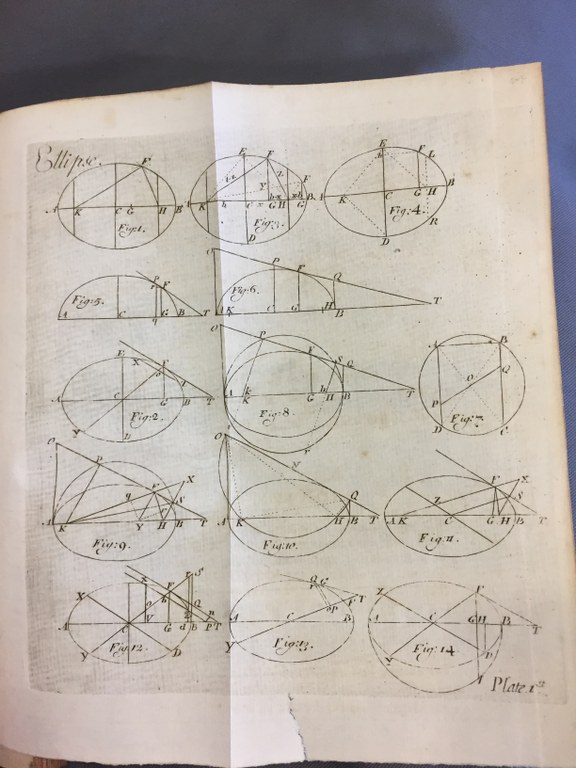 Ellipse.
F
A K C G H B
Fig:1.
E F
K h C x G H G B
D
Fig:3.
E F L
K C G H B
D R
Fig:4.
P F
A C G B T
Fig:5.
O P F Q
A K C H B T
Fig:6.
E X F
A C G B T
Y D
Fig:2.
O P F S Q
A K k G h H B T
Fig:8.
A B
O Q
P
D C
Fig:7.
O P F X
q S
A K Y H B T
Fig:9.
O N Q
A K H B T
Fig:10.
F X
Z S
A K C G H B T
Fig:11.
X F S
Q
A C V G d B P T
Y D
Fig:12.
Q G
P F T
A C B
Y
Fig:13.
Z F
A C G H B T
Y D
Fig:14.
Plate 1st